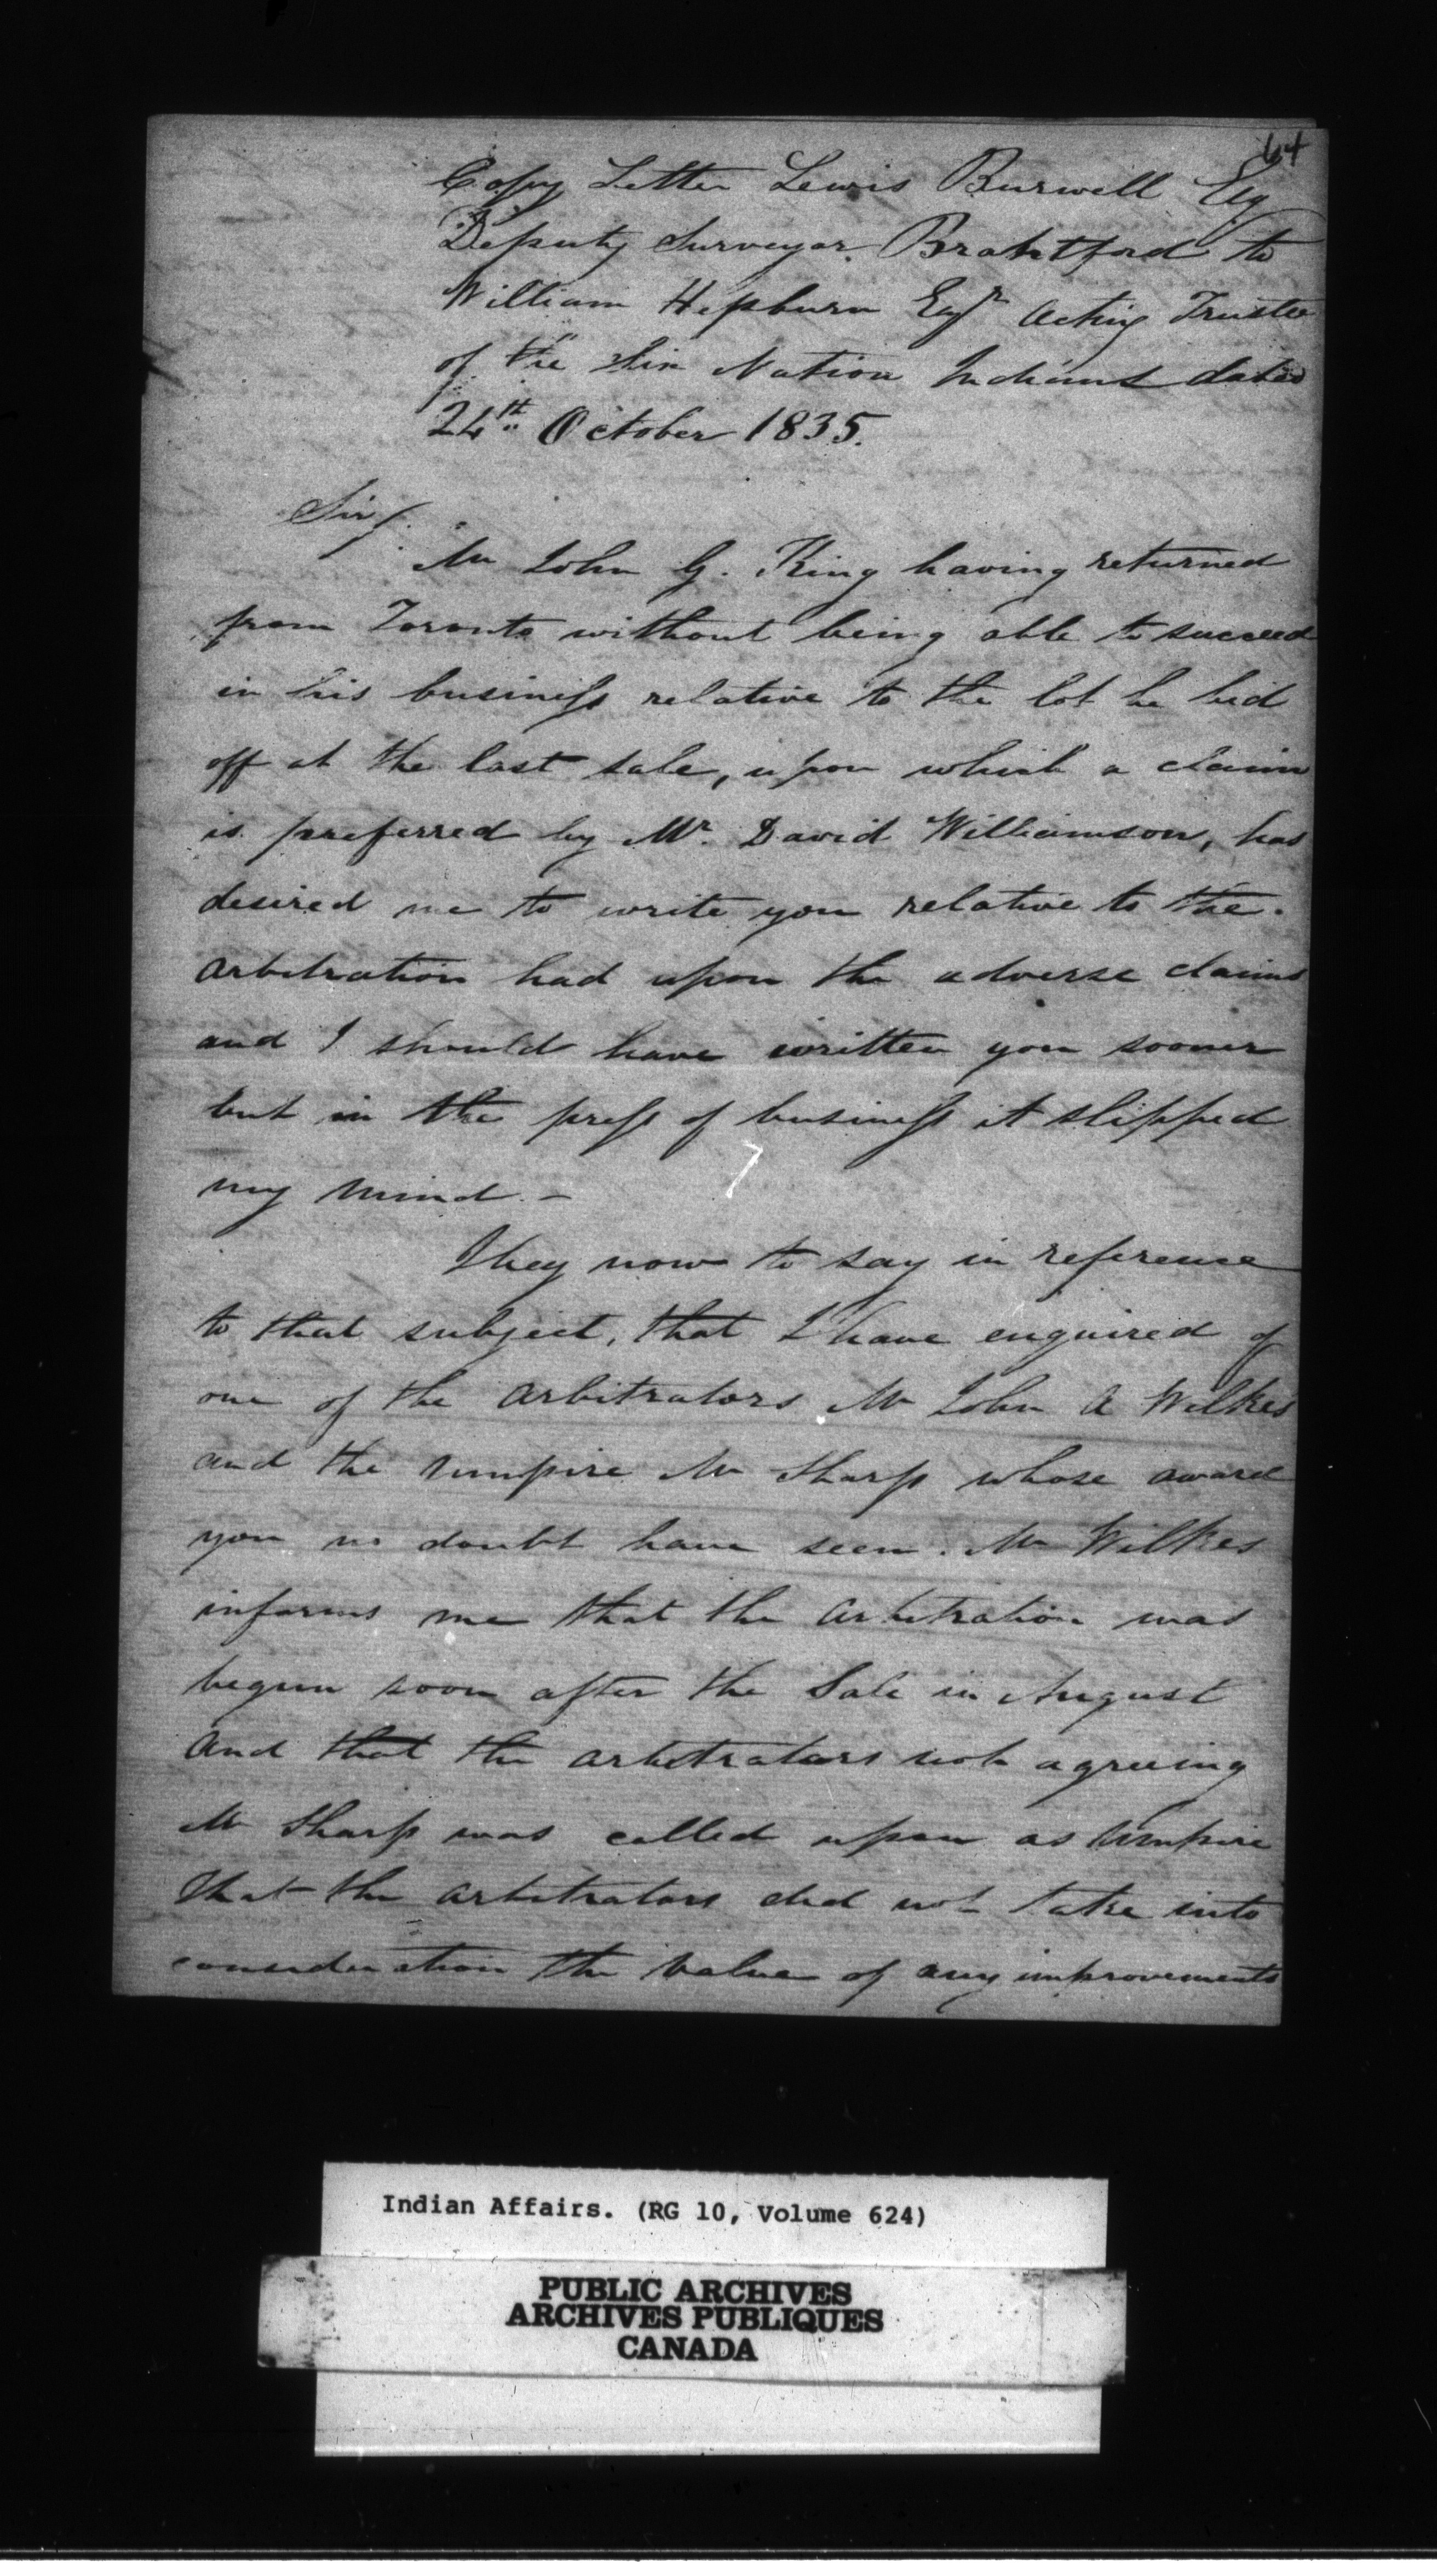 64
Copy Letter Lewis Burwell Esq
Deputy Surveyor. Brantford to
William Hepburn Esqr Acting Trustee
of the Six Nation Indians dated
24th October 1835.
Sir/.
Mr John G. King having returned
from Toronto without being able to succeed
in his business relative to the lot he bid
off at the last sale, upon which a claim
is preferred by Mr. David Williamson, has
desired me to write you relative to the.
arbitration had upon the adverse claims
and I should have written you sooner
but in the press of business it slipped
my mind. -
I beg now to say in reference
to that subject, that I have enquired of
one of the arbitrators Mr John A Wilkes
and the Umpire Mr Sharp whose award
you no doubt have seen. Mr Wilkes
informs me that the arbitration was
begun soon after the Sale in August
and that the arbitrators not agreeing
Mr Sharp was called upon as Umpire
that the arbitrators did not take into
consideration the value of any improvements
7
Indian Affairs. (RG 10, Volume 624)
PUBLIC ARCHIVES
ARCHIVES PUBLIQUES
CANADA